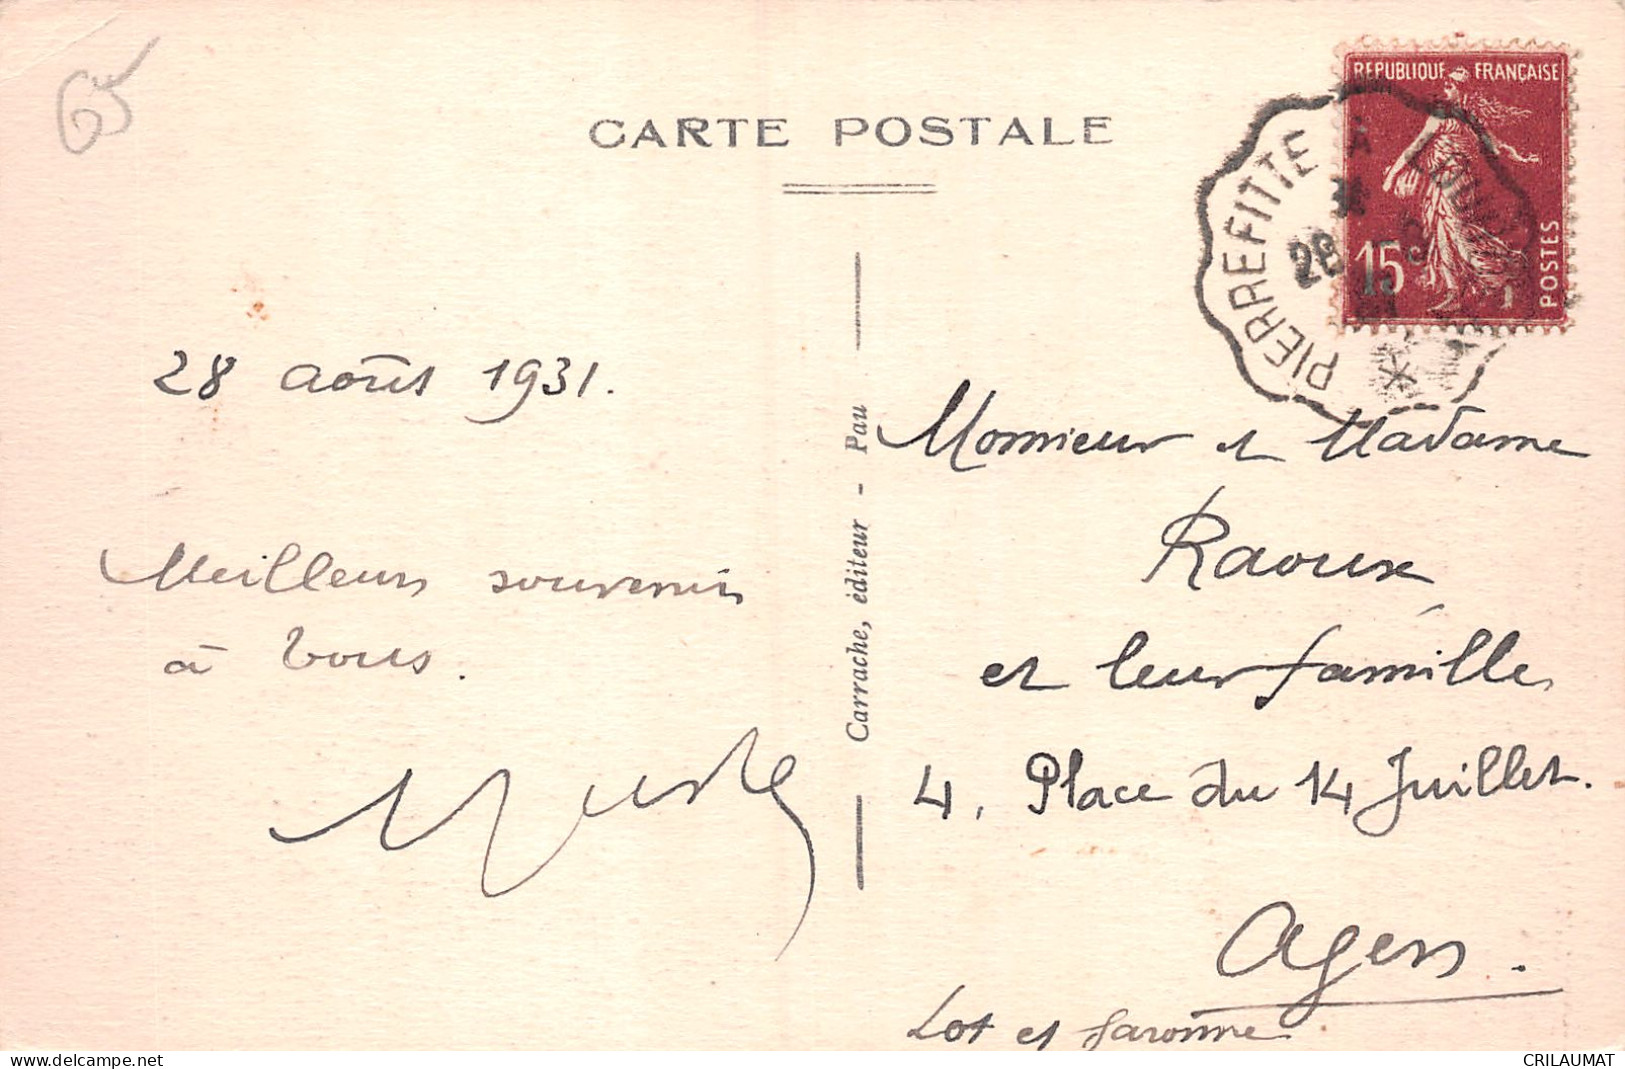 65
CARTE POSTALE
REPUBLIQUE FRANÇAISE
15c
POSTES
PIERREFITTE À
28
28 août 1931.
Meilleurs souvenirs
à tous.
Carrache, éditeur - Pau
Monsieur et Madame
Raoux
et leur famille
4, Place du 14 Juillet.
Agen.
Lot et Garonne
www.delcampe.net
CRILAUMAT